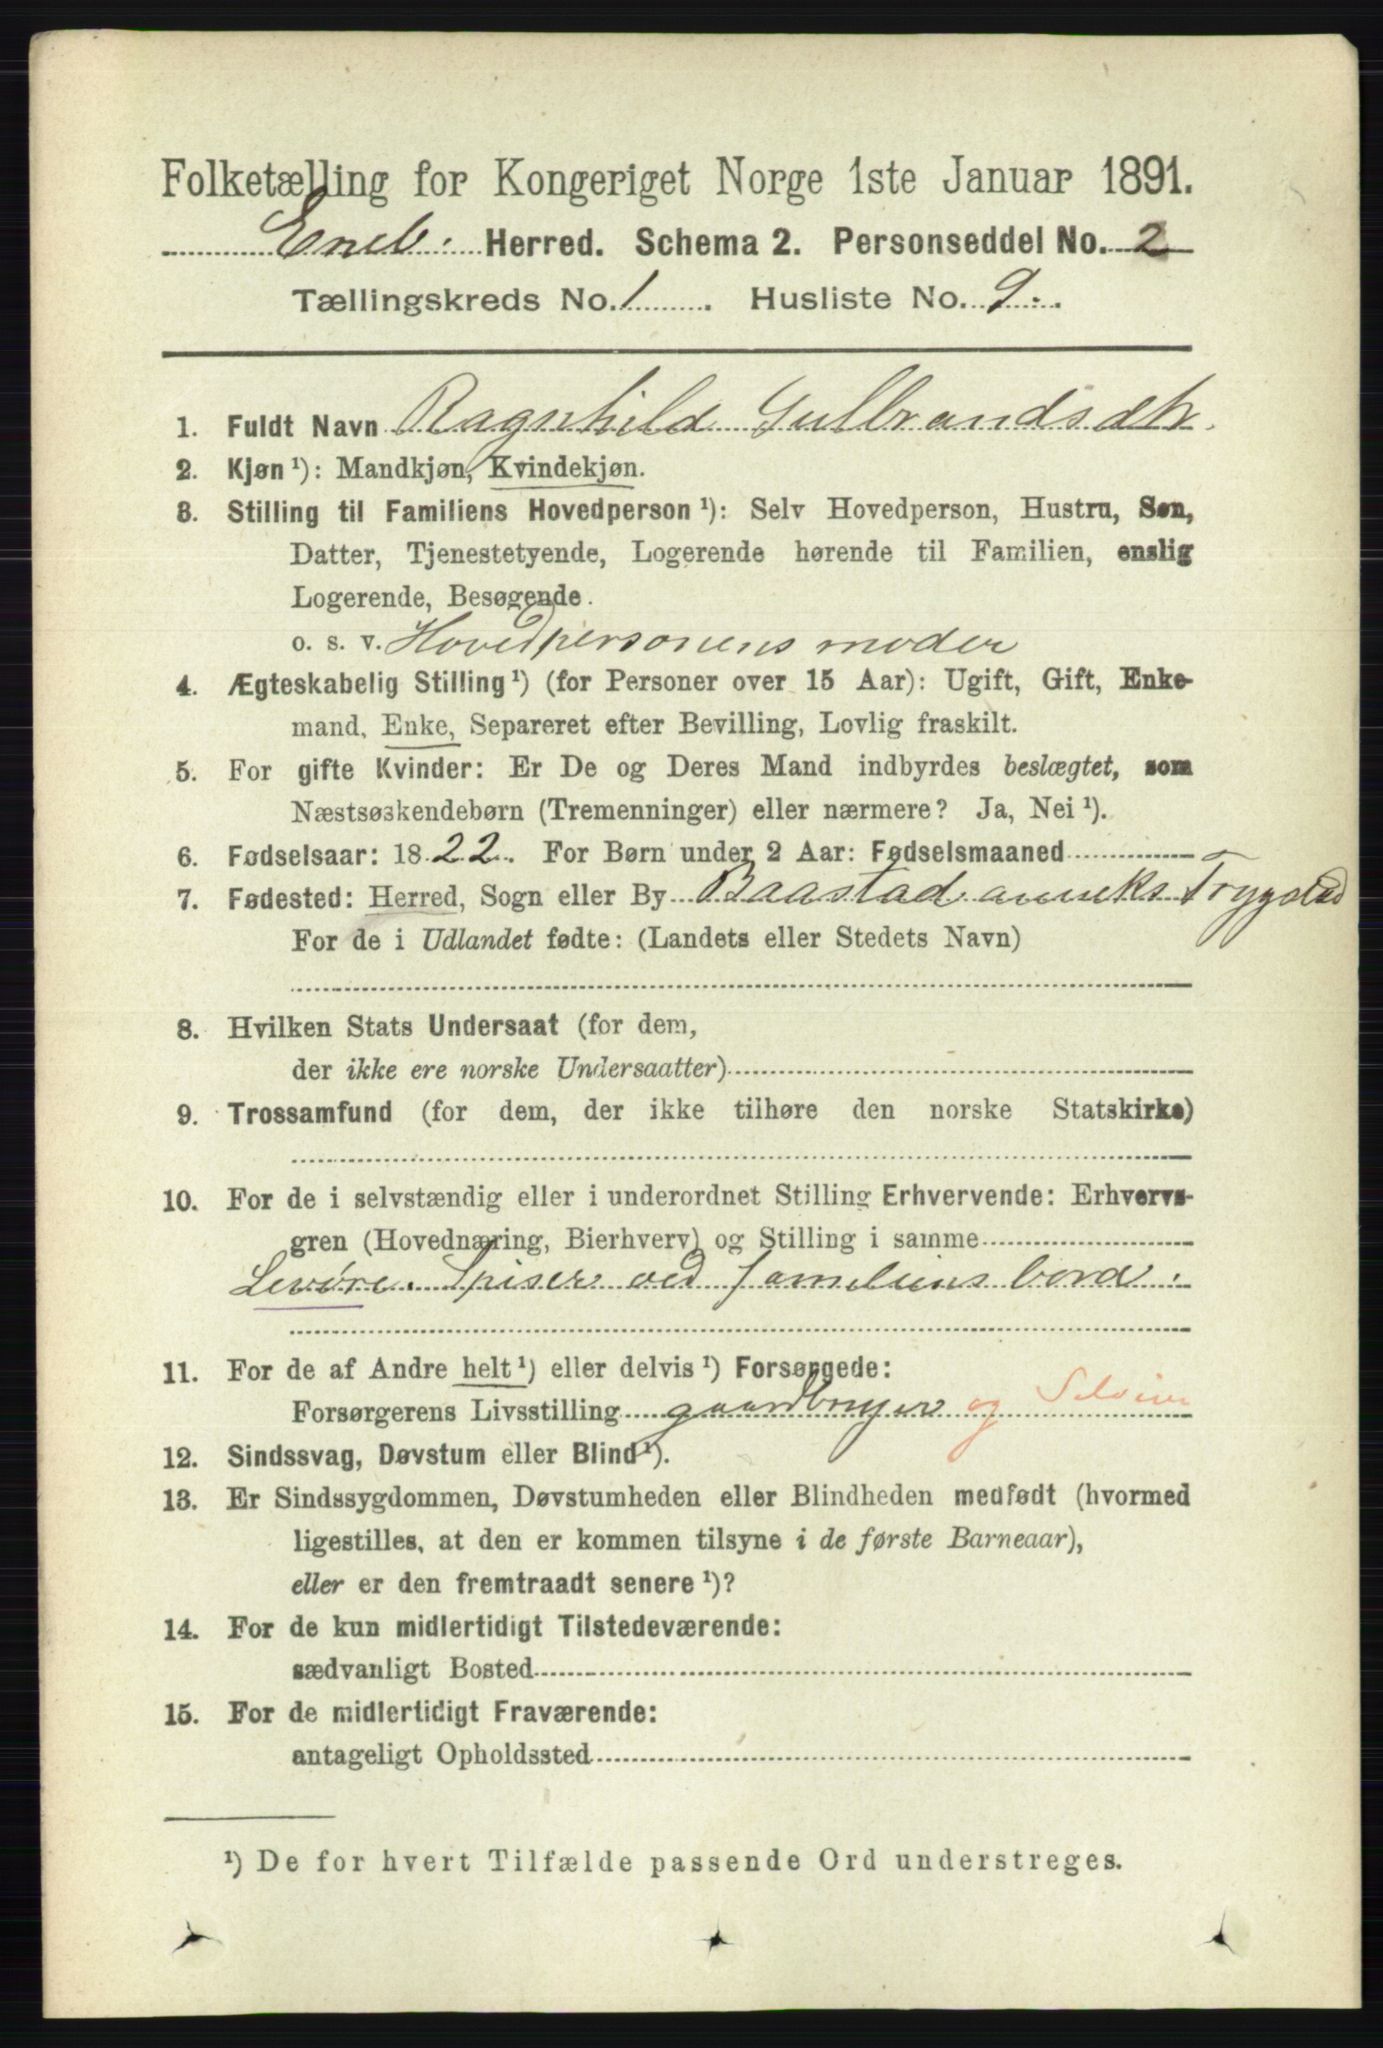 Folketælling for Kongeriget Norge 1ste Januar 1891.
Eneb. Herred. Schema 2. Personseddel No. 2
Tællingskreds No. 1. Husliste No. 9.
1. Fuldt Navn Ragnhild Gulbrandsdtr.
2. Kjøn ¹): Mandkjøn, Kvindekjøn.
3. Stilling til Familiens Hovedperson ¹): Selv Hovedperson, Hustru, Søn,
Datter, Tjenestetyende, Logerende hørende til Familien, enslig
Logerende, Besøgende.
o. s. v. Hovedpersonens moder
4. Ægteskabelig Stilling ¹) (for Personer over 15 Aar): Ugift, Gift, Enke-
mand, Enke, Separeret efter Bevilling, Lovlig fraskilt.
5. For gifte Kvinder: Er De og Deres Mand indbyrdes beslægtet, som
Næstsøskendebørn (Tremenninger) eller nærmere? Ja, Nei ¹).
6. Fødselsaar: 1822. For Børn under 2 Aar: Fødselsmaaned
7. Fødested: Herred, Sogn eller By Baastad anneks Trygstad
For de i Udlandet fødte: (Landets eller Stedets Navn)
8. Hvilken Stats Undersaat (for dem,
der ikke ere norske Undersaatter)
9. Trossamfund (for dem, der ikke tilhøre den norske Statskirke)
10. For de i selvstændig eller i underordnet Stilling Erhvervende: Erhvervs-
gren (Hovednæring, Bierhverv) og Stilling i samme
Levøre. Spiser ved familiens bord.
11. For de af Andre helt ¹) eller delvis ¹) Forsørgede:
Forsørgerens Livsstilling gaardbruger og Selveier
12. Sindssvag, Døvstum eller Blind ¹).
13. Er Sindssygdommen, Døvstumheden eller Blindheden medfødt (hvormed
ligestilles, at den er kommen tilsyne i de første Barneaar),
eller er den fremtraadt senere ¹)?
14. For de kun midlertidigt Tilstedeværende:
sædvanligt Bosted
15. For de midlertidigt Fraværende:
antageligt Opholdssted
¹) De for hvert Tilfælde passende Ord understreges.